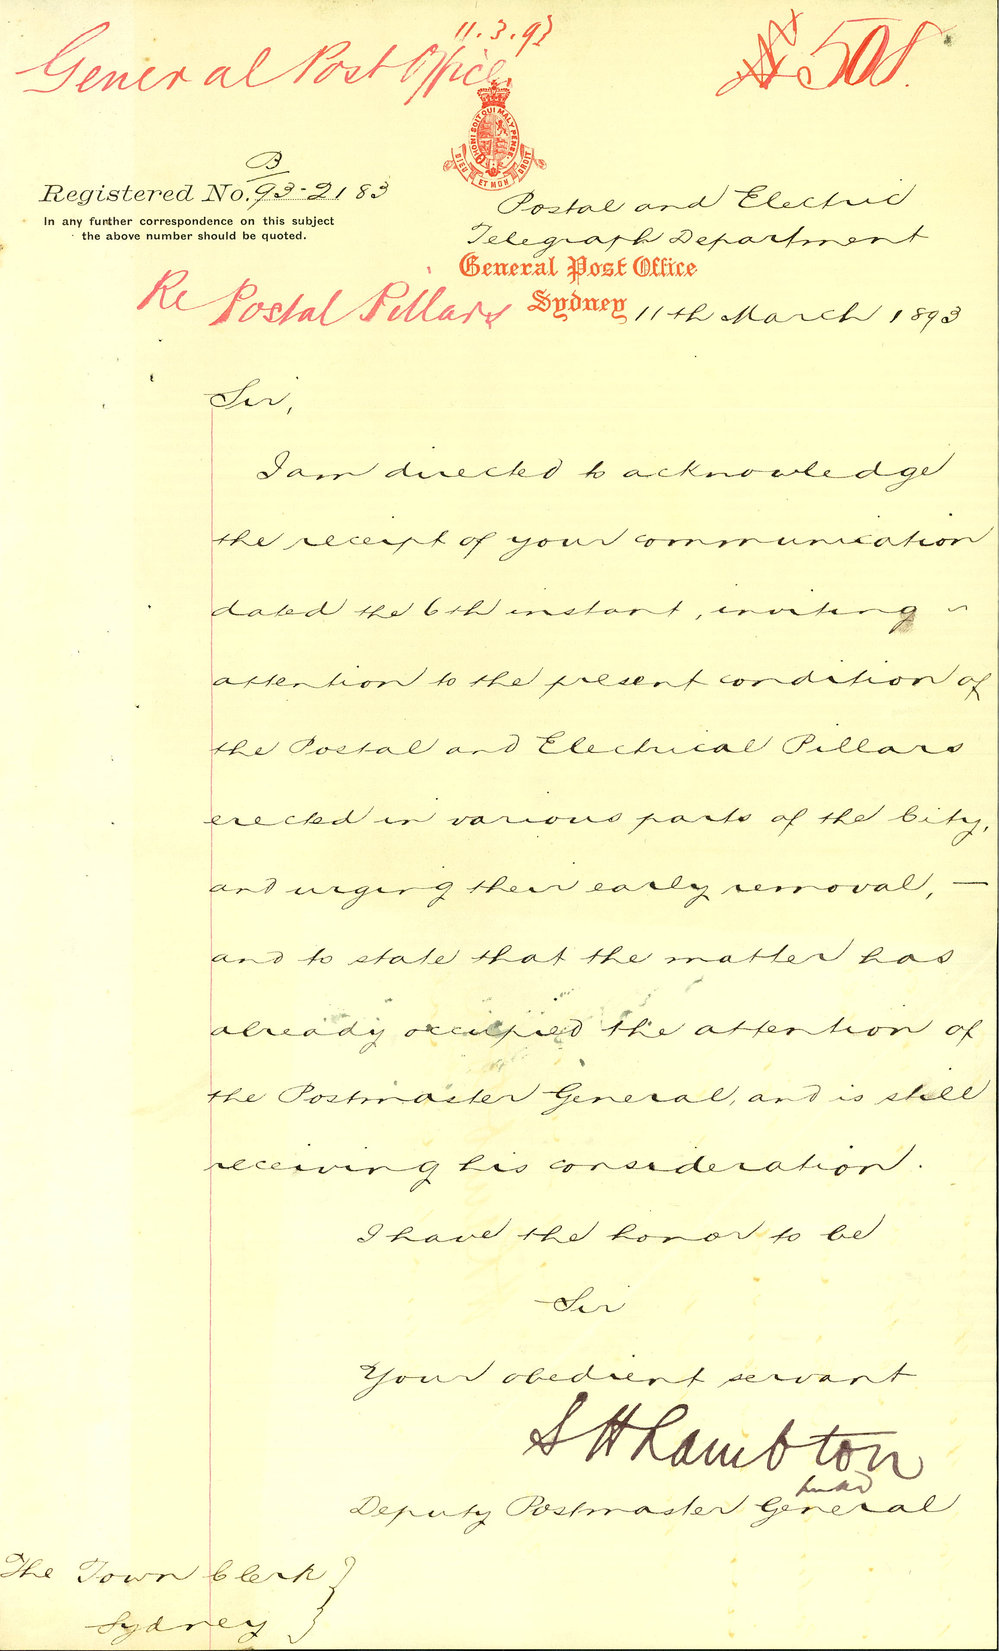 11.3.93
General Post Office
508.
HONI SOIT QUI MAL Y PENSE
DIEU ET MON DROIT
B
Registered No. 93-2183
In any further correspondence on this subject
the above number should be quoted.
Postal and Electric
Telegraph Department
General Post Office
Re Postal Pillars
Sydney 11th March 1893
Sir,
I am directed to acknowledge
the receipt of your communication
dated the 6th instant, inviting
attention to the present condition of
the Postal and Electrical Pillars
erected in various parts of the City,
and urging their early removal, —
and to state that the matter has
already occupied the attention of
the Postmaster General, and is still
receiving his consideration.
I have the honor to be
Sir
Your obedient servant
S H Lambton
Deputy Postmaster General
The Town Clerk }
Sydney }